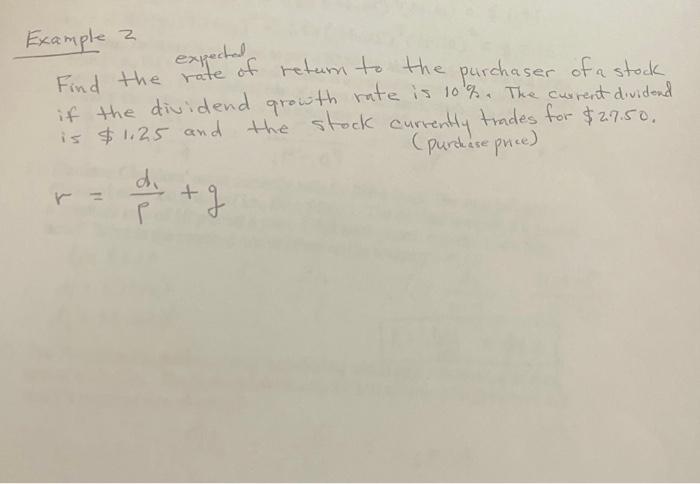 Example 2
expected
Find the rate of return to the purchaser of a stock
if the dividend growth rate is 10%. The current dividend
is $1.25 and the stock currently trades for $27.50.
(purchase price)
r = d₁/P + g